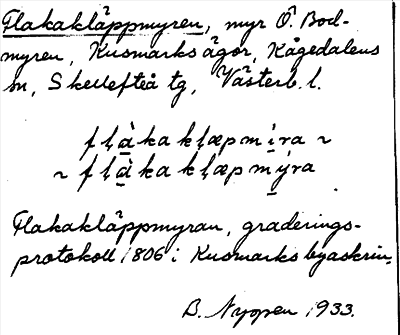 Flakakläppmyren, myr Ö Bod-
myren, Kusmarks ägor, Kågedalens
sn, Skellefteå tg, Västerb. l.
fḷà̱kakḷæpmi̱ra ~
~ fḷà̱kakḷæpmý̱ra
Flakakläppmyran, graderings-
protokoll 1806 i Kusmarks byaskrin.
B. Nyppen 1933.